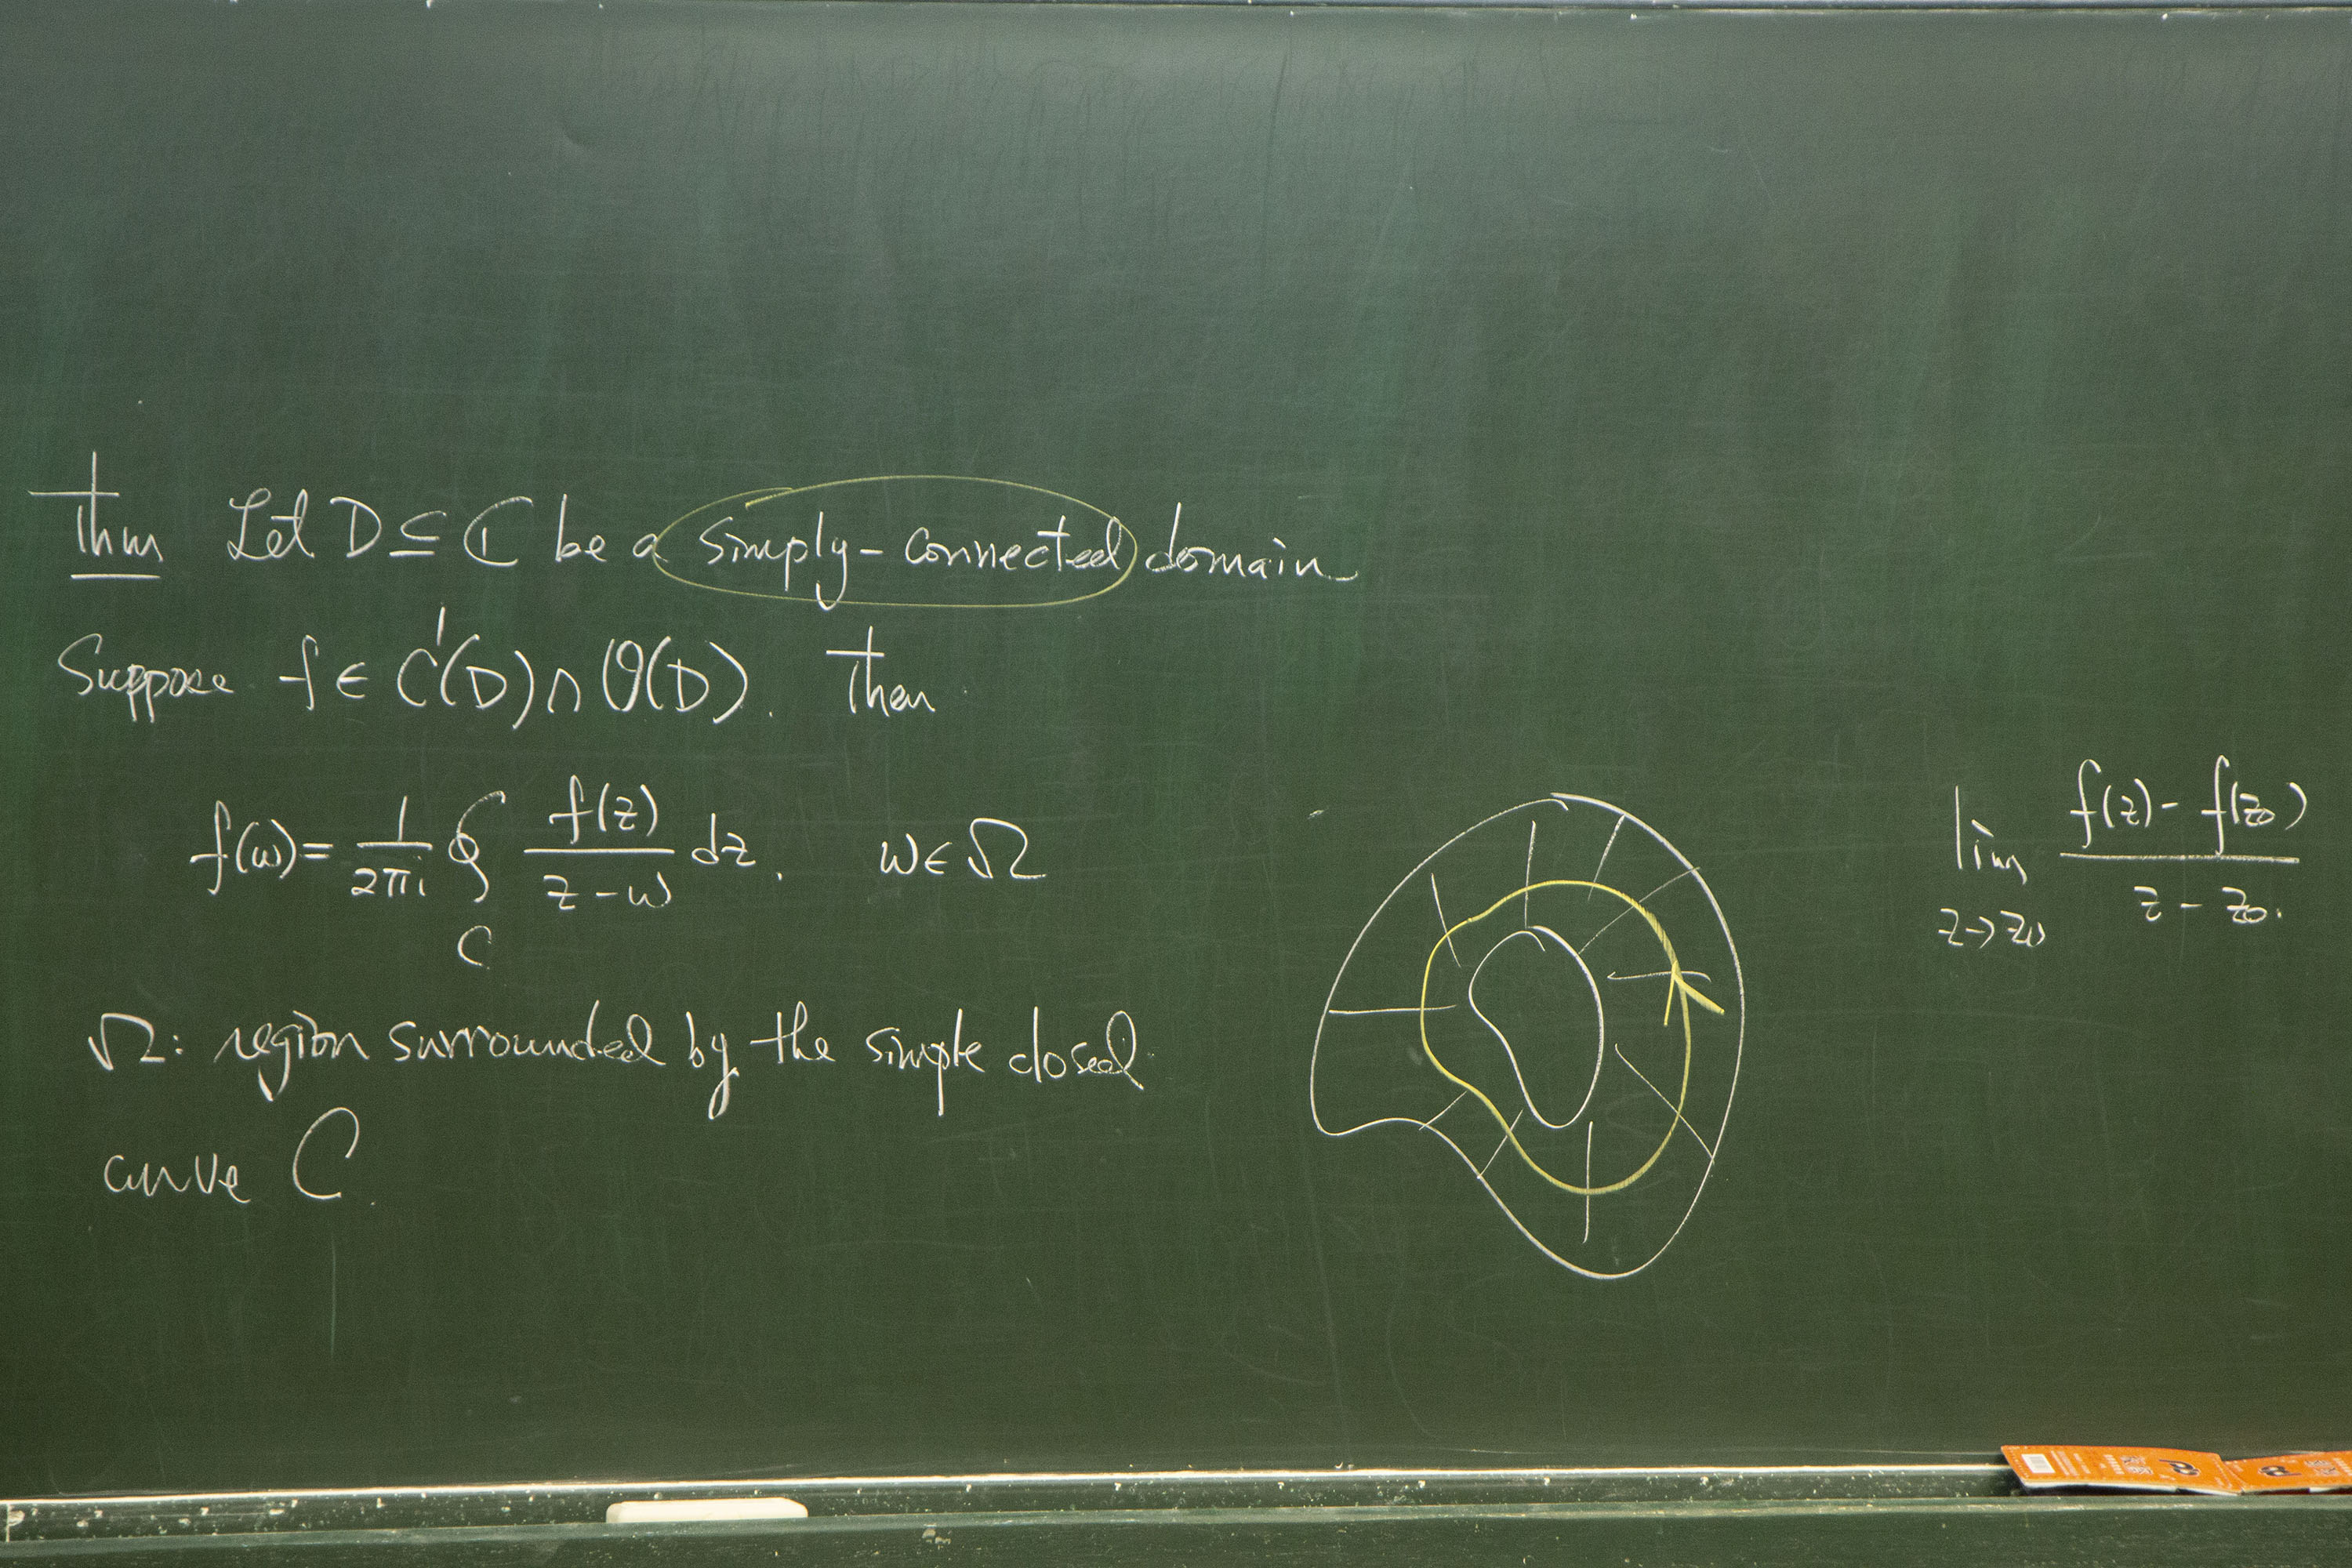 Thm Let D ⊆ ℂ be a simply-connected domain
Suppose f ∈ C¹(D) ∩ O(D). Then
f(w) = 1/2πi ∮_C f(z)/z-w dz. w ∈ Ω
Ω: region surrounded by the simple closed
curve C.
lim_{z→z₀} f(z) - f(z₀)/z - z₀.